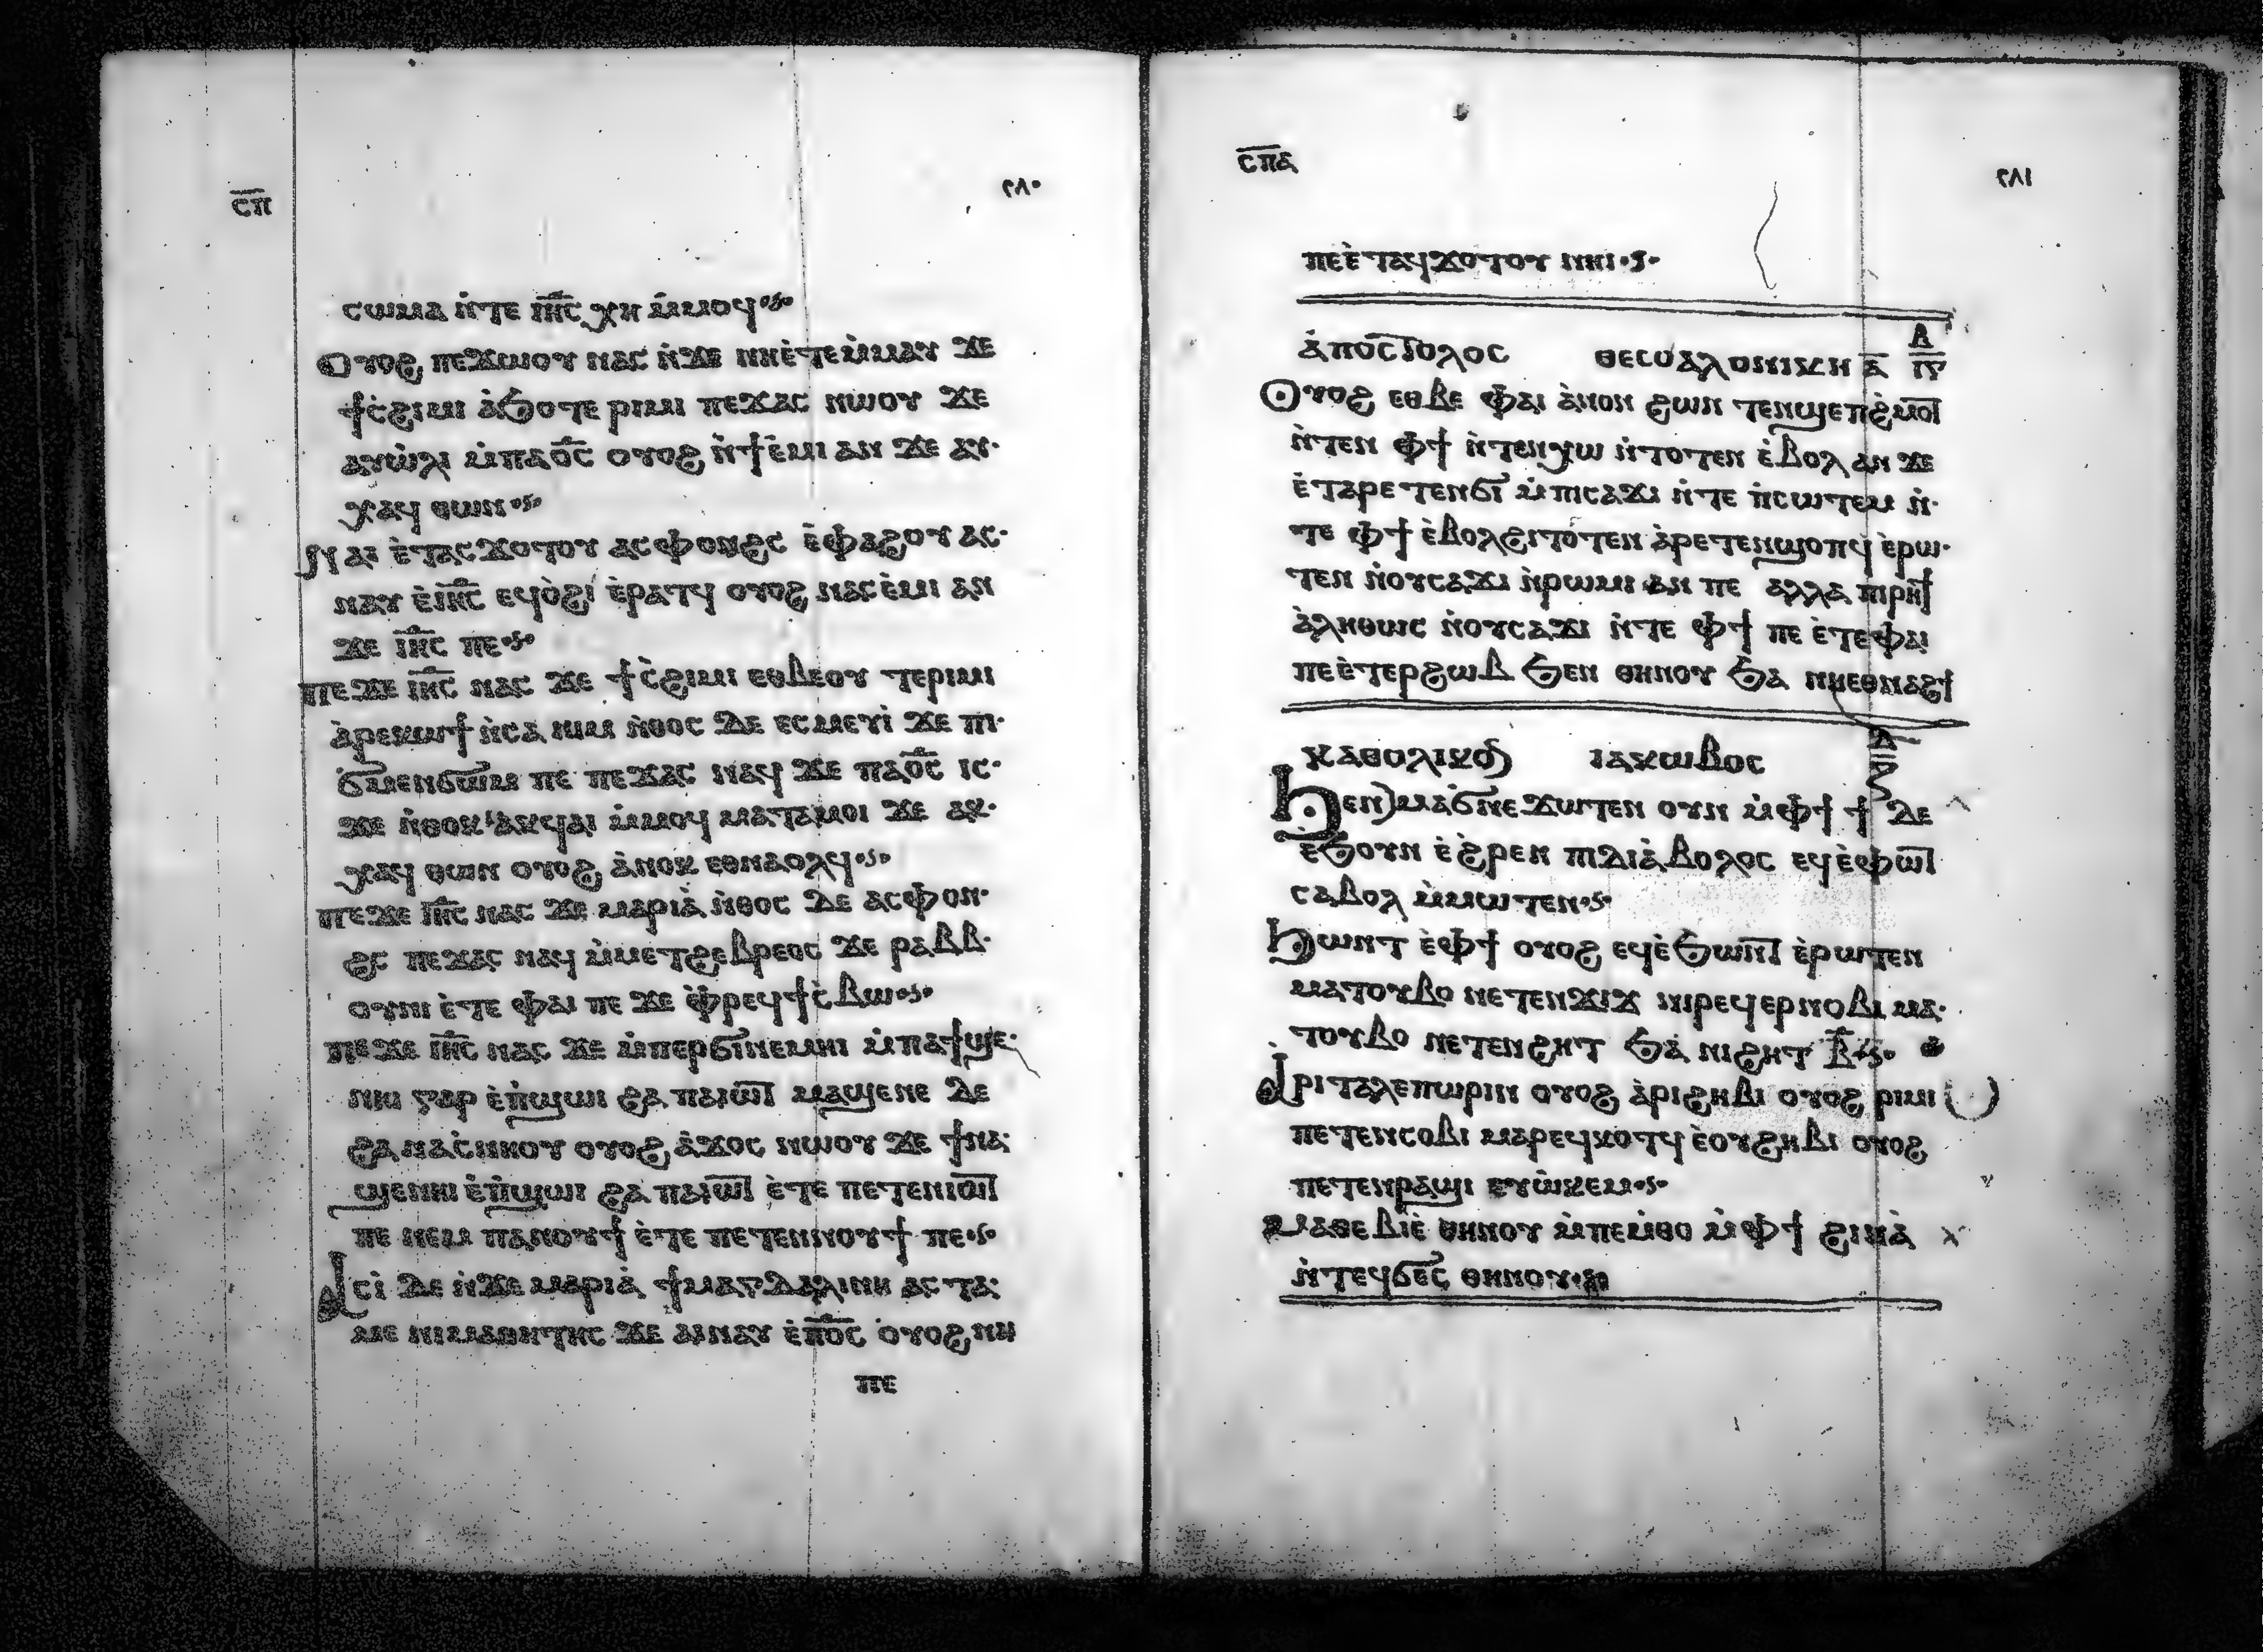 ⲥ̅ⲡ̅
٢٨٠
ⲥⲱⲙⲁ ⲛ̀ⲧⲉ ⲓⲏ̅ⲥ̅ ⲭⲏ ⲙ̀ⲙⲟϥ
Ⲟⲩⲟϩ ⲡⲉϫⲱⲟⲩ ⲛⲁⲥ ⲛ̀ϫⲉ ⲛⲏⲉ̀ⲧⲉⲙ̀ⲙⲁⲩ ϫⲉ
ϯⲥ̀ϩⲓⲙⲓ ⲁ̀ϧⲟⲧⲉ ⲣⲓⲙⲓ ⲡⲉϫⲁⲥ ⲛⲱⲟⲩ ϫⲉ
ⲁⲩⲱ̀ⲗⲓ ⲙ̀ⲡⲁⲟ̅ⲥ̅ ⲟⲩⲟϩ ⲛ̀ϯⲉ̀ⲙⲓ ⲁⲛ ϫⲉ ⲁⲩ·
ⲭⲁϥ ⲑⲱⲛ
Ⲛⲁⲓ ⲉ̀ⲧⲁⲥϫⲟⲧⲟⲩ ⲁⲥⲫⲟⲛϩⲥ ⲉ̀ⲫⲁϩⲟⲩ ⲁⲥ·
ⲛⲁⲩ ⲉ̀ⲓⲏ̅ⲥ̅ ⲉϥⲟ̀ϩⲓ ⲉ̀ⲣⲁⲧϥ ⲟⲩⲟϩ ⲛⲁⲥⲉ̀ⲙⲓ ⲁⲛ
ϫⲉ ⲓⲏ̅ⲥ̅ ⲡⲉ
ⲡⲉϫⲉ ⲓⲏ̅ⲥ̅ ⲛⲁⲥ ϫⲉ ϯⲥ̀ϩⲓⲙⲓ ⲉⲑⲃⲉⲟⲩ ⲧⲉⲣⲓⲙⲓ
ⲁ̀ⲣⲉⲕⲱϯ ⲛ̀ⲥⲁ ⲛⲓⲙ ⲛ̀ⲑⲟⲥ ⲇⲉ ⲉⲥⲙⲉⲩⲓ̀ ϫⲉ ⲡⲓ·
ϭⲙⲉⲛϭⲱⲙ ⲡⲉ ⲡⲉϫⲁⲥ ⲛⲁϥ ϫⲉ ⲡⲁⲟ̅ⲥ̅ ⲓⲥ·
ϫⲉ ⲛ̀ⲑⲟⲕ ⲁⲕϥⲁⲓ ⲙ̀ⲙⲟϥ ⲙⲁⲧⲁⲙⲟⲓ ϫⲉ ⲁⲕ·
ⲭⲁϥ ⲑⲱⲛ ⲟⲩⲟϩ ⲁ̀ⲛⲟⲕ ⲉⲑⲛⲁⲟⲗϥ
ⲡⲉϫⲉ ⲓⲏ̅ⲥ̅ ⲛⲁⲥ ϫⲉ ⲙⲁⲣⲓⲁ̀ ⲛ̀ⲑⲟⲥ ⲇⲉ ⲁⲥⲫⲟⲛ·
ϩⲥ ⲡⲉϫⲁⲥ ⲛⲁϥ ⲙ̀ⲙⲉⲧϩⲉⲃⲣⲉⲟⲥ ϫⲉ ⲣⲁⲃⲃ·
ⲟⲩⲛⲓ ⲉ̀ⲧⲉ ⲫⲁⲓ ⲡⲉ ϫⲉ ⲫ̀ⲣⲉϥϯⲥ̀ⲃⲱ
ⲡⲉϫⲉ ⲓⲏ̅ⲥ̅ ⲛⲁⲥ ϫⲉ ⲙ̀ⲡⲉⲣϭⲓⲛⲉⲙⲏⲓ ⲙ̀ⲡⲁϯϣⲉ·
ⲛⲏⲓ ⲅⲁⲣ ⲉ̀ⲡ̀ϣⲱⲓ ϩⲁ ⲡⲁⲓⲱⲧ ⲙⲁϣⲉⲛⲉ ⲇⲉ
ϩⲁ ⲛⲁⲥ̀ⲛⲏⲟⲩ ⲟⲩⲟϩ ⲁ̀ϫⲟⲥ ⲛⲱⲟⲩ ϫⲉ ϯⲛⲁ·
ϣⲉⲛⲏⲓ ⲉ̀ⲡ̀ϣⲱⲓ ϩⲁ ⲡⲁⲓⲱⲧ ⲉ̀ⲧⲉ ⲡⲉⲧⲉⲛⲓⲱⲧ
ⲡⲉ ⲛⲉⲙ ⲡⲁⲛⲟⲩϯ ⲉ̀ⲧⲉ ⲡⲉⲧⲉⲛⲛⲟⲩϯ ⲡⲉ
Ⲁⲥⲓ̀ ⲇⲉ ⲛ̀ϫⲉ ⲙⲁⲣⲓⲁ̀ ϯⲙⲁⲅⲇⲁⲗⲓⲛⲏ ⲁⲥⲧⲁ·
ⲙⲉ ⲛⲓⲙⲁⲑⲏⲧⲏⲥ ϫⲉ ⲁⲓⲛⲁⲩ ⲉ̀ⲡⲟ̅ⲥ̅ ⲟⲩⲟϩ ⲛⲏ
ⲡⲉ
ⲥ̅ⲡ̅ⲁ̅
٢٨١
ⲡⲉⲉ̀ⲧⲁϥϫⲟⲧⲟⲩ ⲛⲏⲓ
ⲁ̀ⲡⲟⲥⲧⲟⲗⲟⲥ ⲑⲉⲥⲥⲁⲗⲟⲛⲓⲕⲏ ⲁ̅
Ⲟⲩⲟϩ ⲉⲑⲃⲉ ⲫⲁⲓ ⲁ̀ⲛⲟⲛ ϩⲱⲛ ⲧⲉⲛϣⲉⲡϩ̀ⲙⲟⲧ
ⲛ̀ⲧⲉⲛ ⲫϯ ⲛ̀ⲧⲉⲛⲭⲱ ⲛ̀ⲧⲟⲧⲉⲛ ⲉ̀ⲃⲟⲗ ⲁⲛ ϫⲉ
ⲉ̀ⲧⲁⲣⲉⲧⲉⲛϭⲓ ⲙ̀ⲡⲓⲥⲁϫⲓ ⲛ̀ⲧⲉ ⲡ̀ⲥⲱⲧⲉⲙ ⲛ̀·
ⲧⲉ ⲫϯ ⲉ̀ⲃⲟⲗϩⲓⲧⲟⲧⲉⲛ ⲁ̀ⲣⲉⲧⲉⲛϣⲟⲡϥ ⲉ̀ⲣⲱ·
ⲧⲉⲛ ⲛ̀ⲟⲩⲥⲁϫⲓ ⲛ̀ⲣⲱⲙⲓ ⲁⲛ ⲡⲉ ⲁⲗⲗⲁ ⲙ̀ⲫⲣⲏϯ
ⲁ̀ⲗⲏⲑⲱⲥ ⲛ̀ⲟⲩⲥⲁϫⲓ ⲛ̀ⲧⲉ ⲫϯ ⲡⲉ ⲉ̀ⲧⲉⲫⲁⲓ
ⲡⲉⲉ̀ⲧⲉⲣϩⲱⲃ ϧⲉⲛ ⲑⲏⲛⲟⲩ ϧⲁ ⲛⲏⲉⲑⲛⲁϩϯ
ⲕⲁⲑⲟⲗⲓⲕⲟⲛ ⲓⲁⲕⲱⲃⲟⲥ
Ϧⲉⲛ ⲙⲁϭⲛⲉϫⲱⲧⲉⲛ ⲟⲩⲛ ⲙ̀ⲫϯ ϯ ⲇⲉ
ⲉ̀ϧⲟⲩⲛ ⲉ̀ϩⲣⲉⲛ ⲡⲓⲇⲓⲁ̀ⲃⲟⲗⲟⲥ ⲉϥⲉ̀ⲫⲱⲧ
ⲥⲁⲃⲟⲗ ⲙ̀ⲙⲱⲧⲉⲛ
Ϧⲱⲛⲧ ⲉ̀ⲫϯ ⲟⲩⲟϩ ⲉϥⲉ̀ϧⲱⲛⲧ ⲉ̀ⲣⲱⲧⲉⲛ
ⲙⲁⲧⲟⲩⲃⲟ ⲛⲉⲧⲉⲛϫⲓϫ ⲛⲓⲣⲉϥⲉⲣⲛⲟⲃⲓ ⲙⲁ·
ⲧⲟⲩⲃⲟ ⲛⲉⲧⲉⲛϩⲏⲧ ϧⲁ ⲛⲓϩⲏⲧ ⲃ̅
Ⲁⲣⲓⲧⲁⲗⲉⲡⲱⲣⲓⲛ ⲟⲩⲟϩ ⲁ̀ⲣⲓϩⲏⲃⲓ ⲟⲩⲟϩ ⲣⲓⲙⲓ
ⲡⲉⲧⲉⲛⲥⲟⲃⲓ ⲙⲁⲣⲉϥⲕⲟⲧϥ ⲉ̀ⲟⲩϩⲏⲃⲓ ⲟⲩⲟϩ
ⲡⲉⲧⲉⲛⲣⲁϣⲓ ⲉⲩⲱ̀ⲕⲉⲙ
Ⲙⲁⲑⲉⲃⲓⲉ̀ ⲑⲏⲛⲟⲩ ⲙ̀ⲡⲉⲙ̀ⲑⲟ ⲙ̀ⲫϯ ϩⲓⲛⲁ̀
ⲛ̀ⲧⲉϥϭⲉⲥ ⲑⲏⲛⲟⲩ